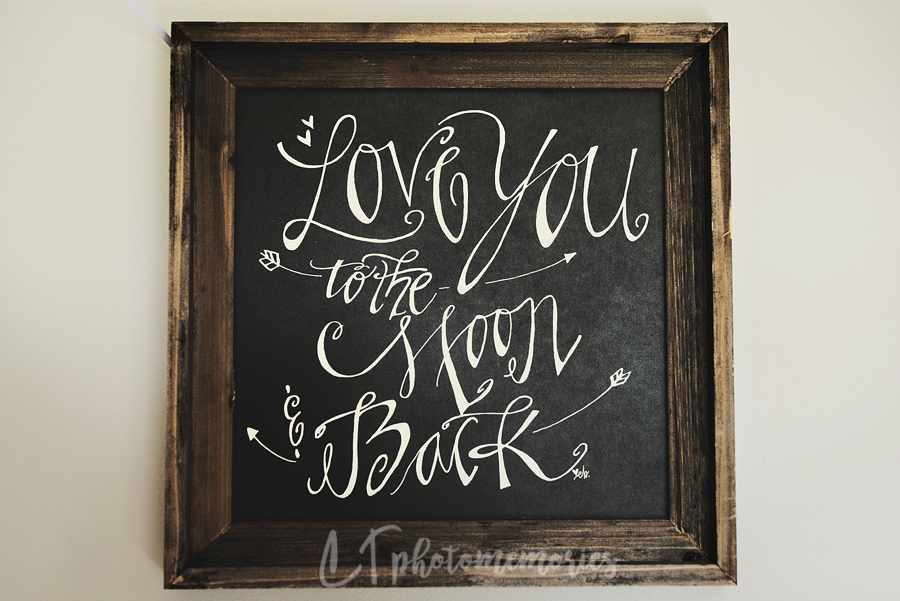 Love You
to the
Moon
& Back
LTphotomemories